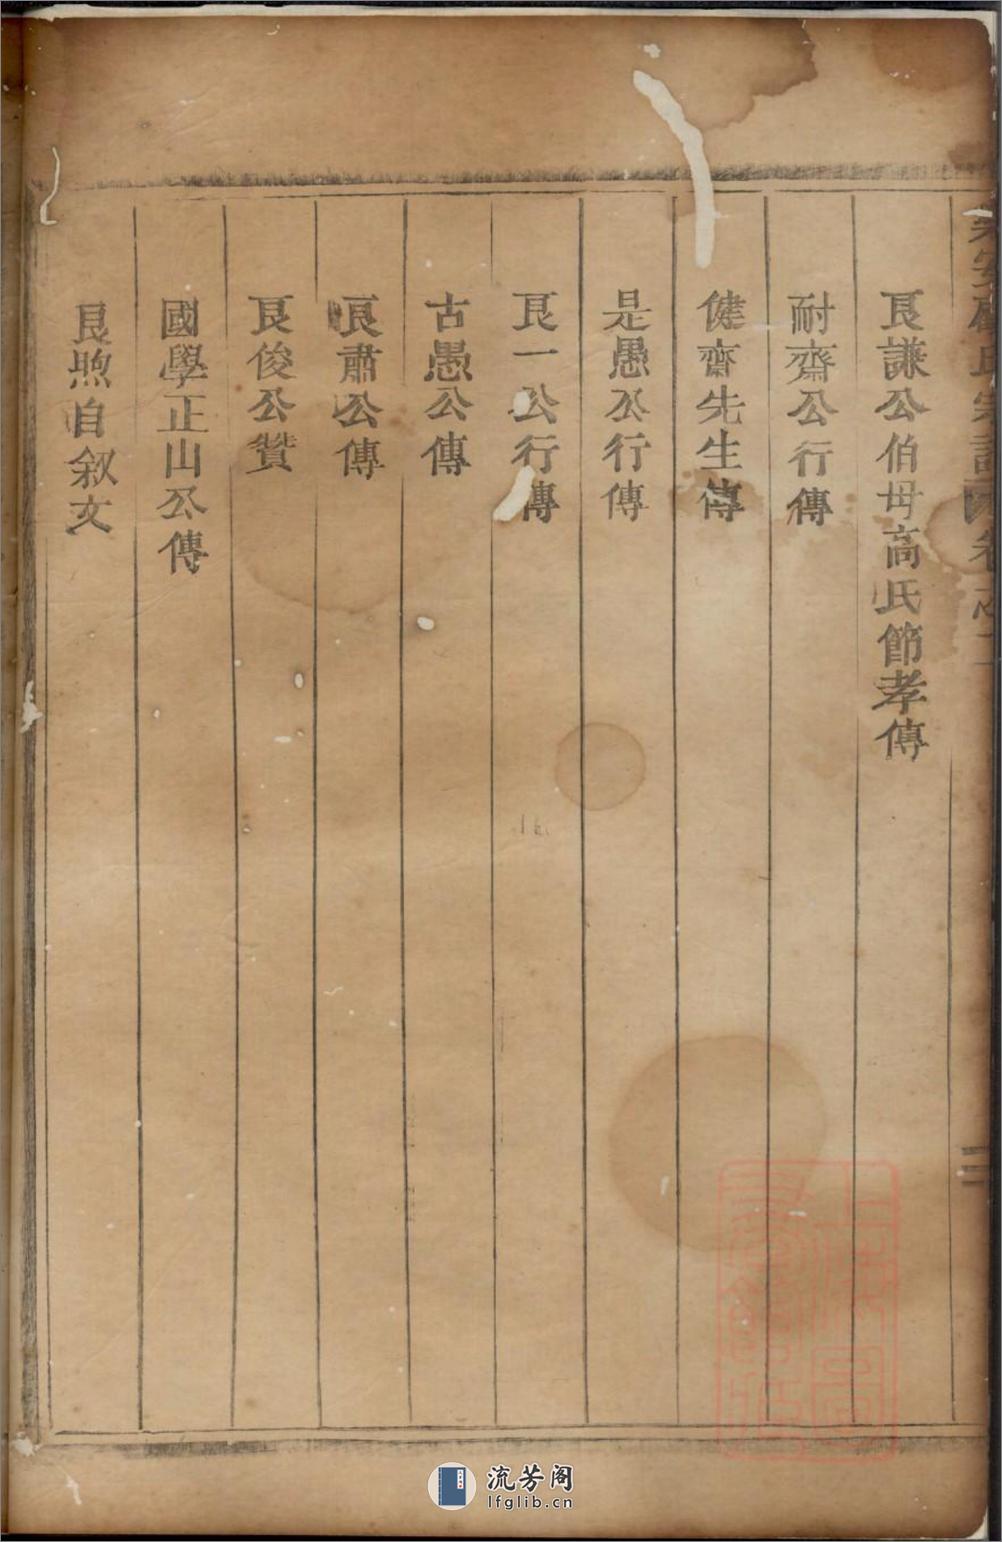 艮謙公伯母高氏節孝傳
耐齋公行傳
健齋先生傳
是愚公行傳
艮一公行傳
古愚公傳
艮肅公傳
艮俊公贊
國學正山公傳
艮煦自叙文
流芳阁
lfglib.cn